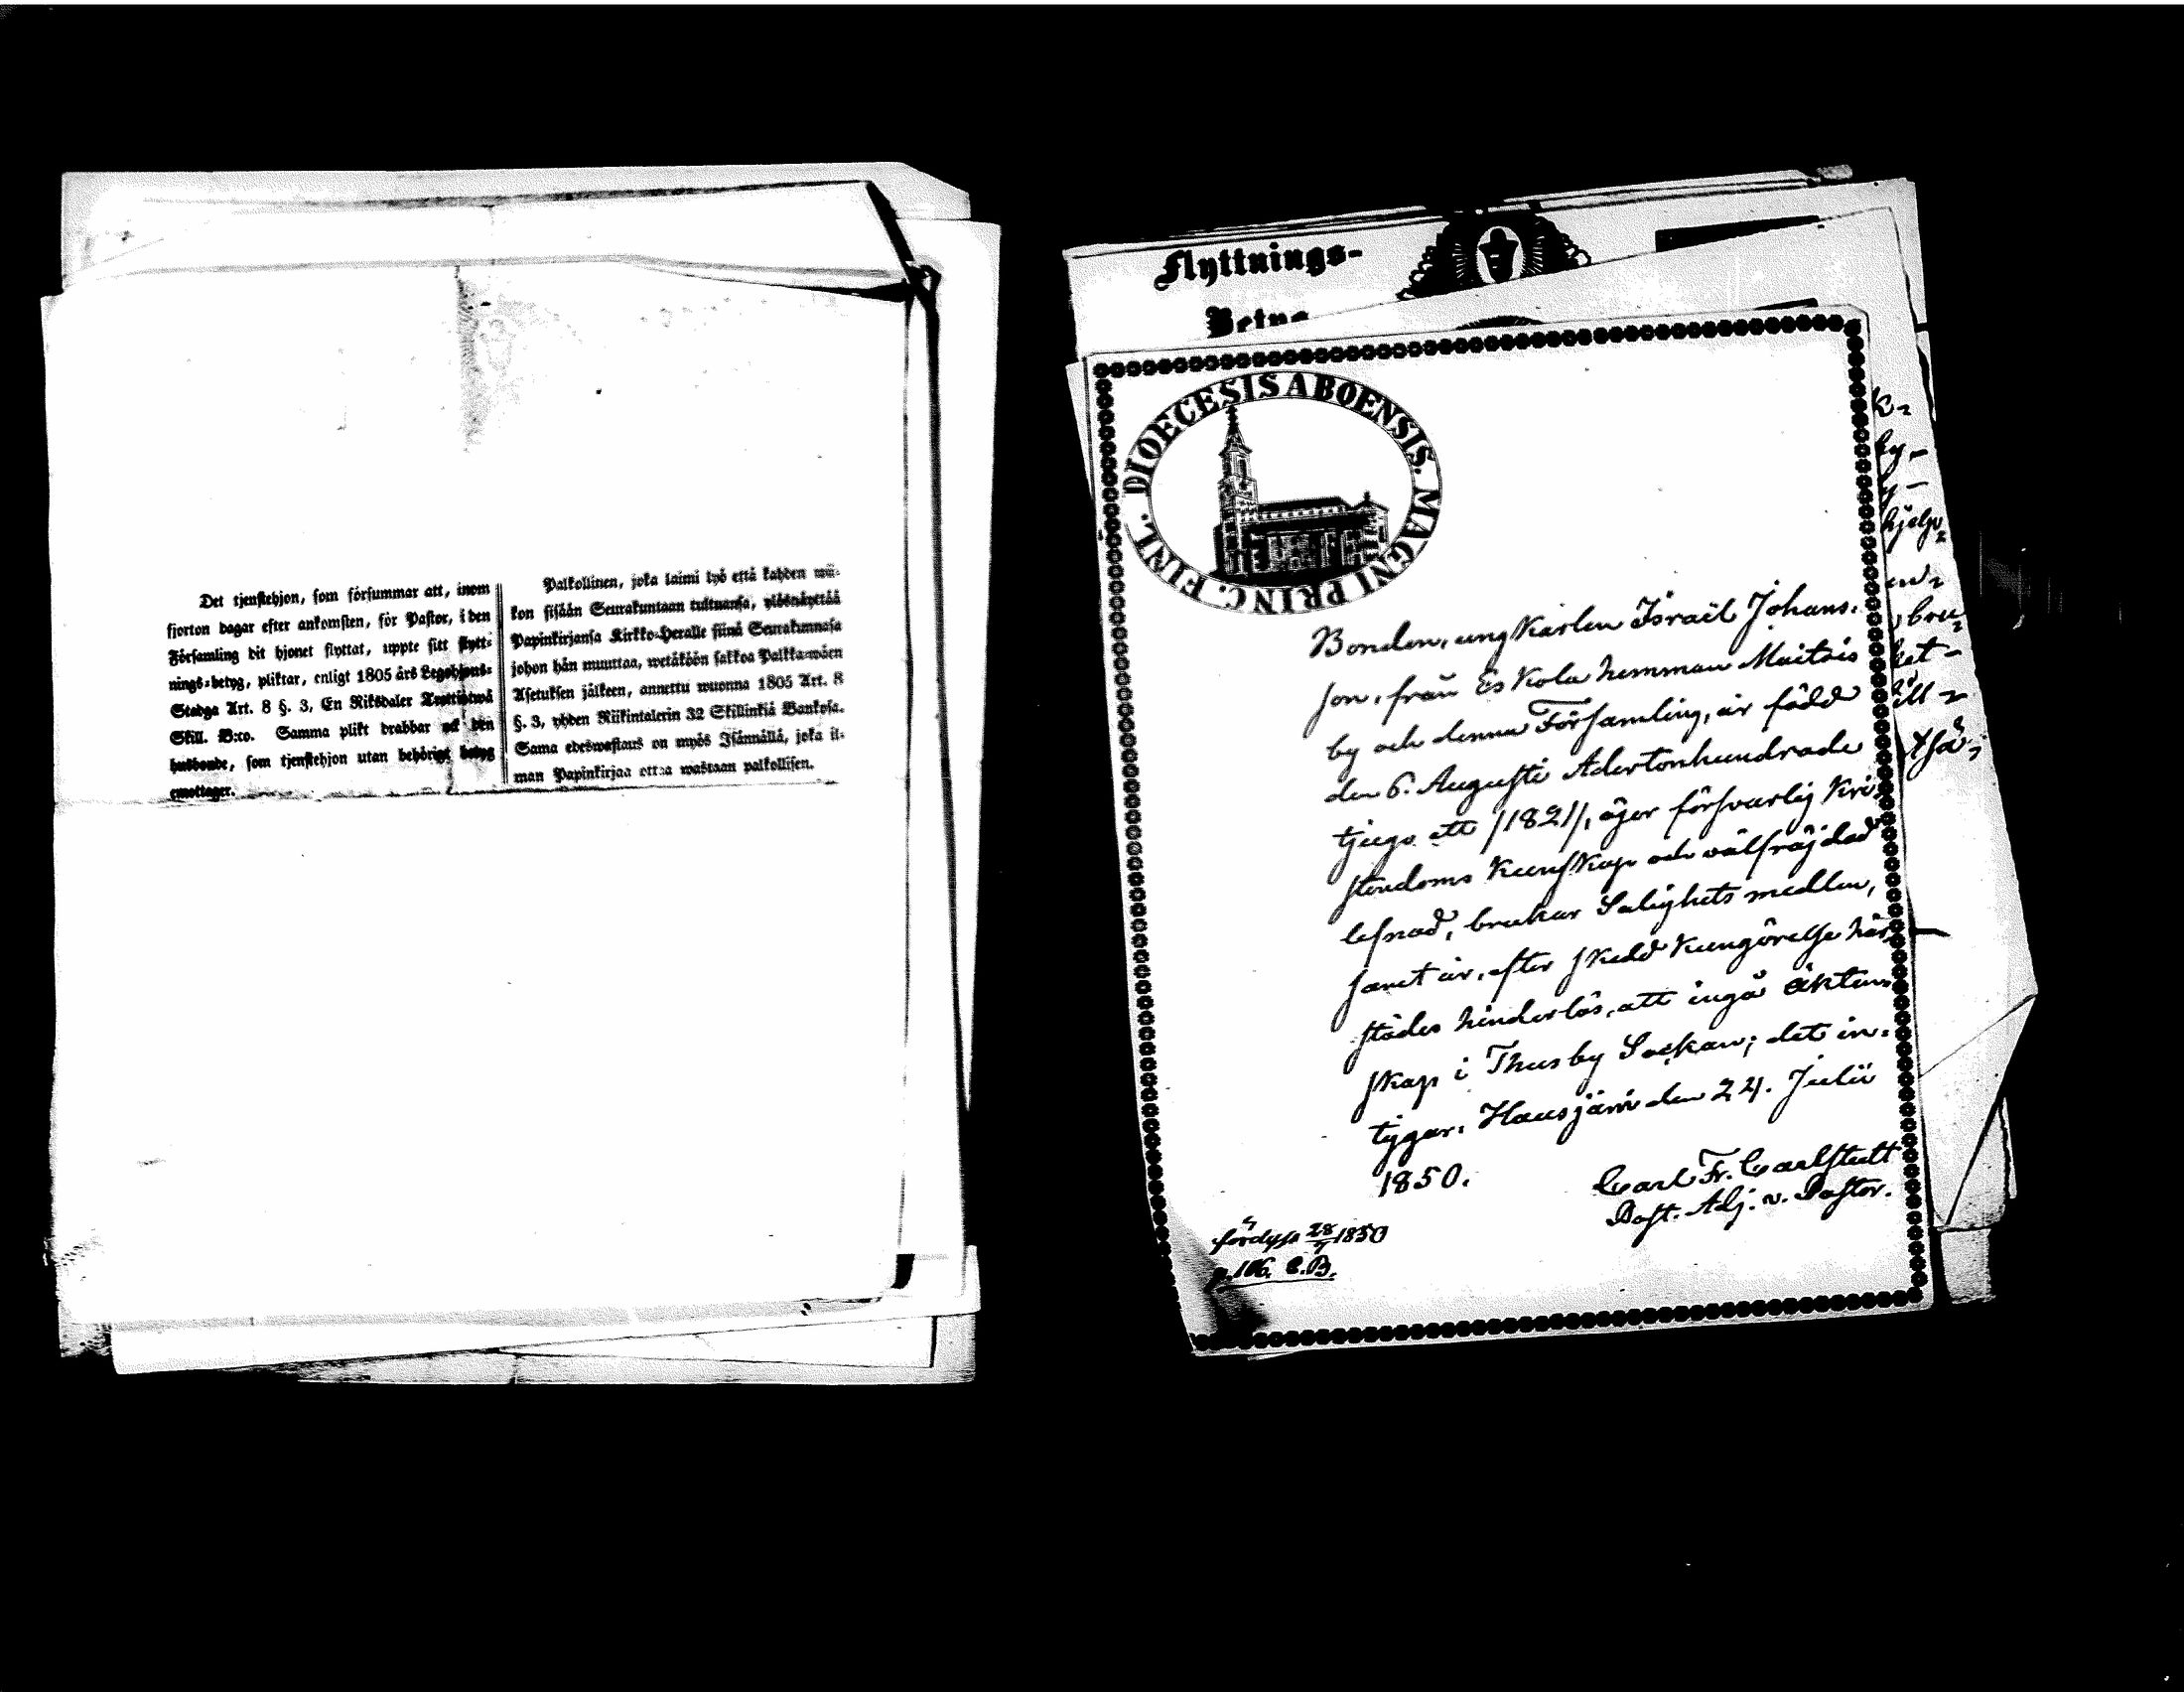 Det tjenstehjon, som försummar att, inom
fjorton dagar efter ankomsten, för Pastor, i den
Församling dit hjonet flyttat, uppte sitt flytt-
nings-betyg, pliktar, enligt 1805 års Legohjons-
Stadga Art. 8 §. 3, En Riksdaler Trettiotwå
Skill. B:co. Samma plikt drabbar ock den
husbonde, som tjenstehjon utan behörigt betyg
emottager.
Palkollinen, joka laimi lyö että kahden wii-
kon sisään Seurakuntaan tultuansa, ylösnäyttää
Papinkirjansa Kirkko-Heralle siinä Seurakunnasa
johon hän muuttaa, wetäköön sakkoa Palkkawäen
Asetuksen jälkeen, annettu wuonna 1805 Art. 8
§. 3, yhden Riikintalerin 32 Skillinkiä Bankosa.
Sama edeswastaus on myös Isännällä, joka il-
man Papinkirjaa ottaa wastaan palkollisen.
Flyttnings-
DIOECESIS ABOENSIS. MAGNI PRINC. FINL.
Bonden, ung Karlen Israël Johans-
son, från Eskola hemman Maitois
by och denna Församling, är född
den 6. Augusti Adertonhundrade
tjugo ett /1821/, äger försvarlig Kri-
stendoms Kunskap och välfräjdad
lefnad, brukar Salighets medlen,
samt är, efter skedd Kungörelse här-
städes hinderlös, att ingå äkten-
skap i Thusby Socken; det in-
tygar. Hausjärvi den 24. Julii
1850.
Carl Fr. Carlstedt
Past. Adj. v. Pastor.
28/7 1850
p. 106. C.B.
hjelp-
bru-
ket-
till